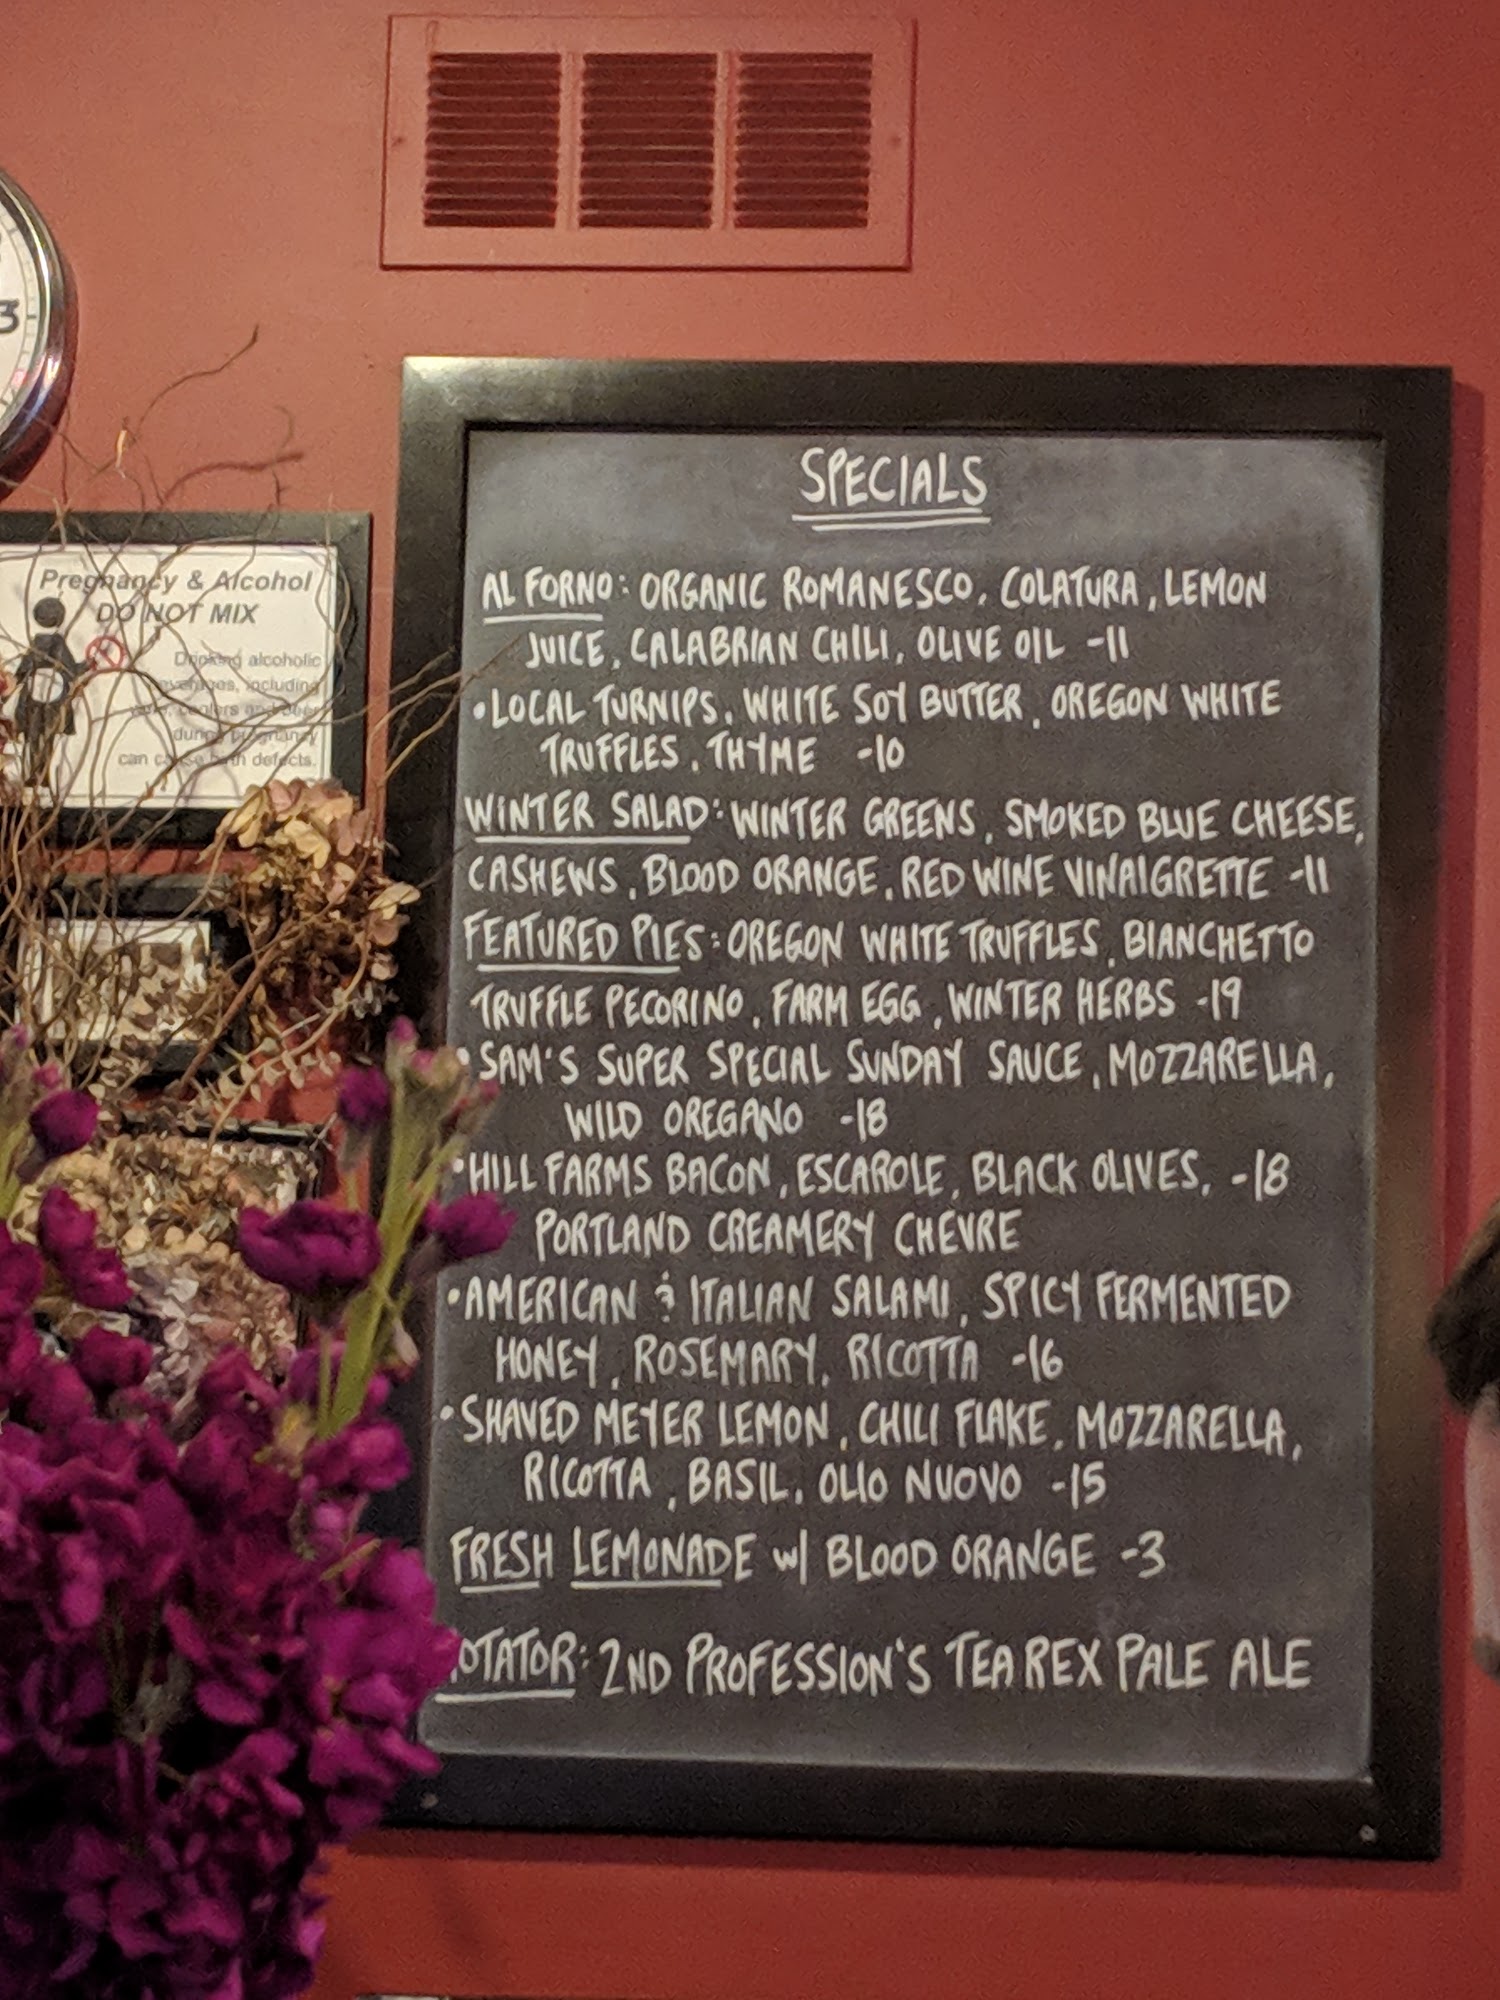 3
Pregnancy & Alcohol
DO NOT MIX
Drinking alcoholic
beverages, including
wine, coolers and beer
during pregnancy
can cause birth defects.
SPECIALS
AL FORNO: ORGANIC ROMANESCO, COLATURA, LEMON
JUICE, CALABRIAN CHILI, OLIVE OIL -11
•LOCAL TURNIPS, WHITE SOY BUTTER, OREGON WHITE
TRUFFLES, THYME -10
WINTER SALAD: WINTER GREENS, SMOKED BLUE CHEESE,
CASHEWS, BLOOD ORANGE, RED WINE VINAIGRETTE -11
FEATURED PIES: OREGON WHITE TRUFFLES, BIANCHETTO
TRUFFLE PECORINO, FARM EGG, WINTER HERBS -19
•SAM'S SUPER SPECIAL SUNDAY SAUCE, MOZZARELLA,
WILD OREGANO -18
•HILL FARMS BACON, ESCAROLE, BLACK OLIVES, -18
PORTLAND CREAMERY CHEVRE
•AMERICAN & ITALIAN SALAMI, SPICY FERMENTED
HONEY, ROSEMARY, RICOTTA -16
•SHAVED MEYER LEMON, CHILI FLAKE, MOZZARELLA,
RICOTTA, BASIL, OLIO NUOVO -15
FRESH LEMONADE w/ BLOOD ORANGE -3
ROTATOR: 2ND PROFESSION'S TEA REX PALE ALE